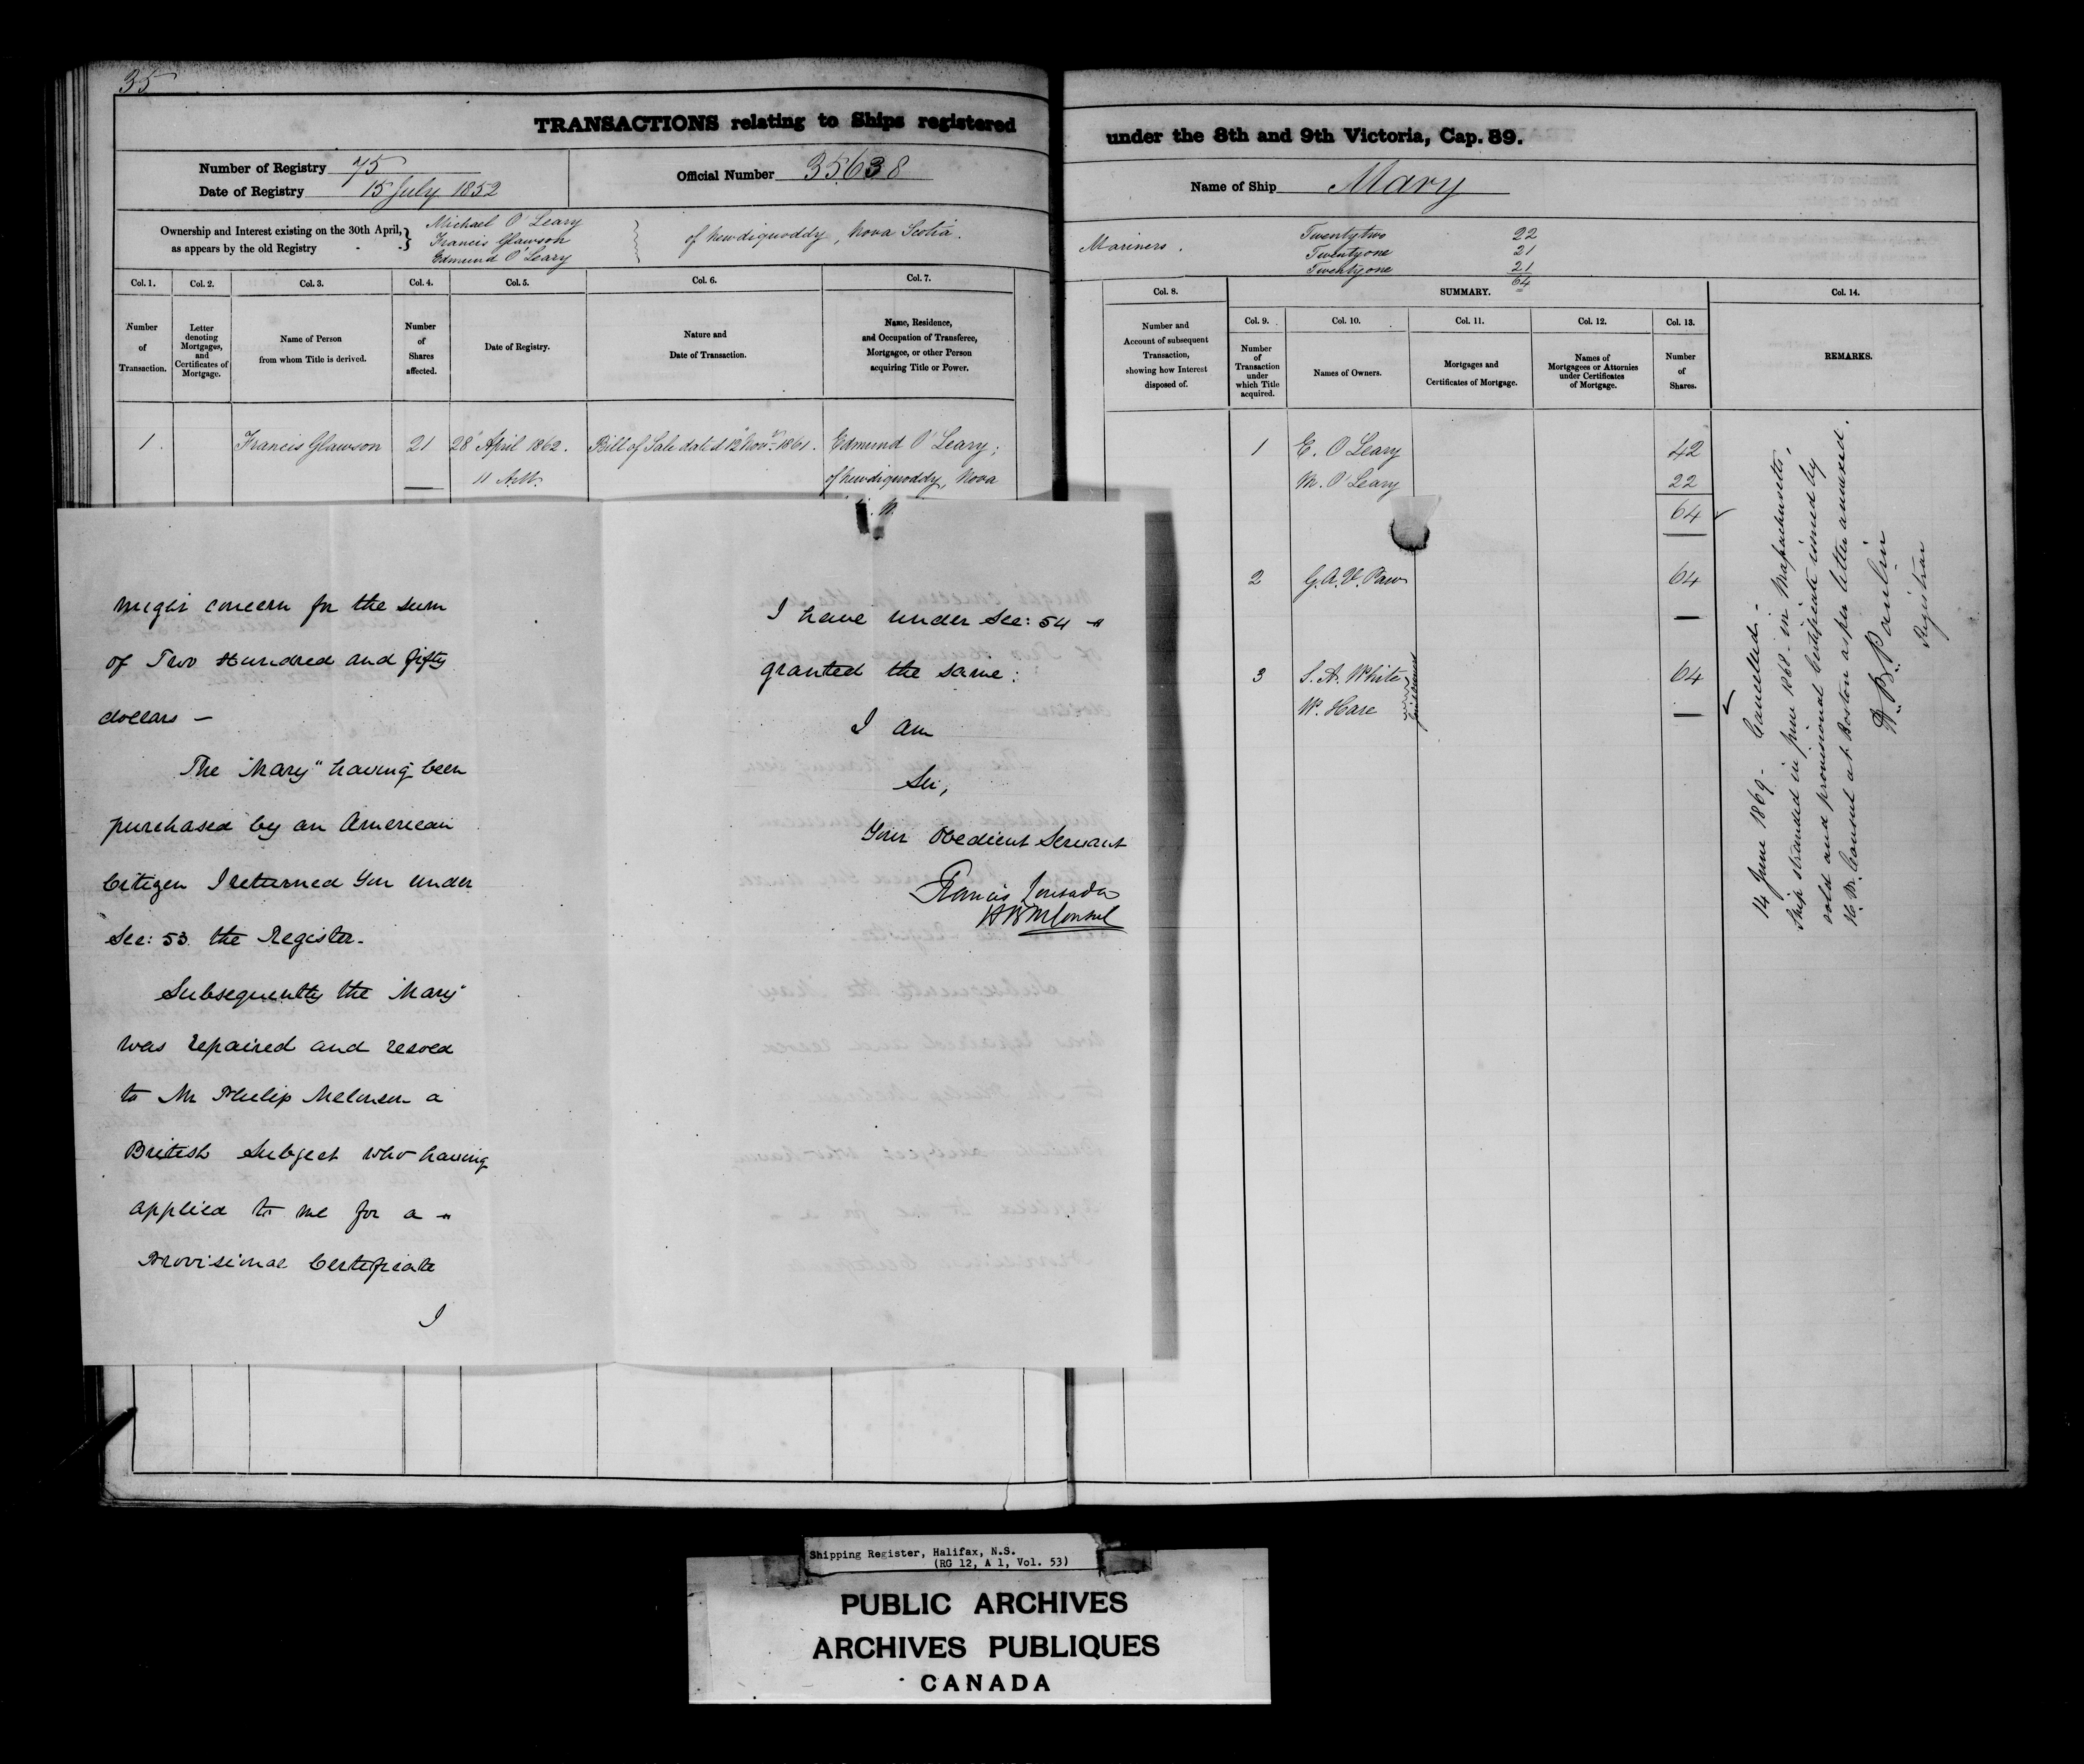 35
TRANSACTIONS relating to Ships registered
Number of Registry 75
Date of Registry 15 July 1852
Official Number 35638
Ownership and Interest existing on the 30th April,
as appears by the old Registry
Michael O'Leary
Francis Glawson
Edmund O'Leary
of Newdiquoddy, Nova Scotia.
Col. 1. Col. 2. Col. 3. Col. 4. Col. 5. Col. 6. Col. 7.
Number of Transaction.
Letter denoting Mortgages, and Certificates of Mortgage.
Name of Person from whom Title is derived.
Number of Shares affected.
Date of Registry.
Nature and Date of Transaction.
Name, Residence, and Occupation of Transferee, Mortgagee, or other Person acquiring Title or Power.
1. Francis Glawson 21 28 April 1862. Bill of Sale dated 12 Novr 1861. Edmund O'Leary;
11 A.M. of Newdiquoddy, Nova
might concern for the sum
of Two Hundred and fifty
dollars —
The "Mary" having been
purchased by an American
Citizen I returned you under
Sec: 53 the Register.
Subsequently the "Mary"
was repaired and resold
to Mr Philip Melonson a
British Subject who having
applied to me for a
Provisional Certificate
I
I have under Sec: 54
granted the same:
I am
Sir,
Your Obedient Servant
Francis Lousada
HBM Consul
under the 8th and 9th Victoria, Cap. 89.
Name of Ship Mary
Mariners.
Twenty two 22
Twenty one 21
Twenty one 21
64
Col. 8. SUMMARY. Col. 14.
Number and Account of subsequent Transaction, showing how Interest disposed of.
Col. 9. Col. 10. Col. 11. Col. 12. Col. 13.
Number of Transaction under which Title acquired.
Names of Owners.
Mortgages and Certificates of Mortgage.
Names of Mortgagees or Attornies under Certificates of Mortgage.
Number of Shares.
REMARKS.
1 E. O'Leary 42
M. O'Leary 22
64
2 G.A.V. Paw 64
3 S. A. White 64
W. Hare
14 June 1869 - Cancelled -
Ship stranded in June 1868 - in Massachusetts,
sold and provisional Certificate issued by
H. B. M. Consul at Boston as per letter annexed.
H. B. Paulin
Registrar
Shipping Register, Halifax, N.S.
(RG 12, A 1, Vol. 53)
PUBLIC ARCHIVES
ARCHIVES PUBLIQUES
CANADA